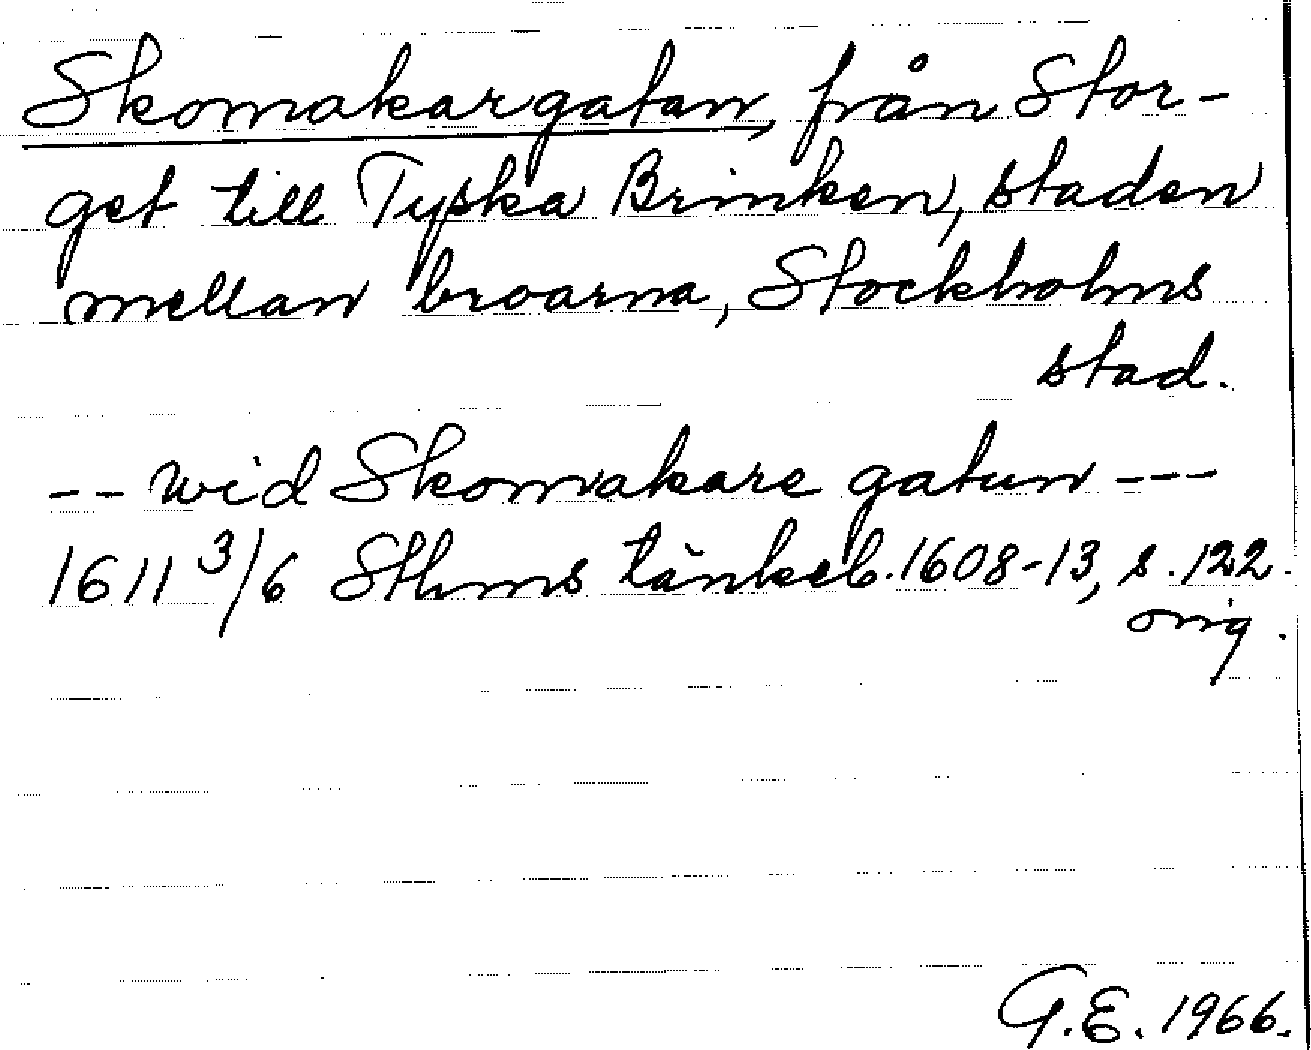 Skomakargatan, från Stor-
get till Tyska Brinken, staden
mellan broarna, Stockholms
stad.
-- wid Skomakare gatun ---
1611 3/6 Sthms tänkeb. 1608-13, s. 122.
orig.
G.E. 1966.